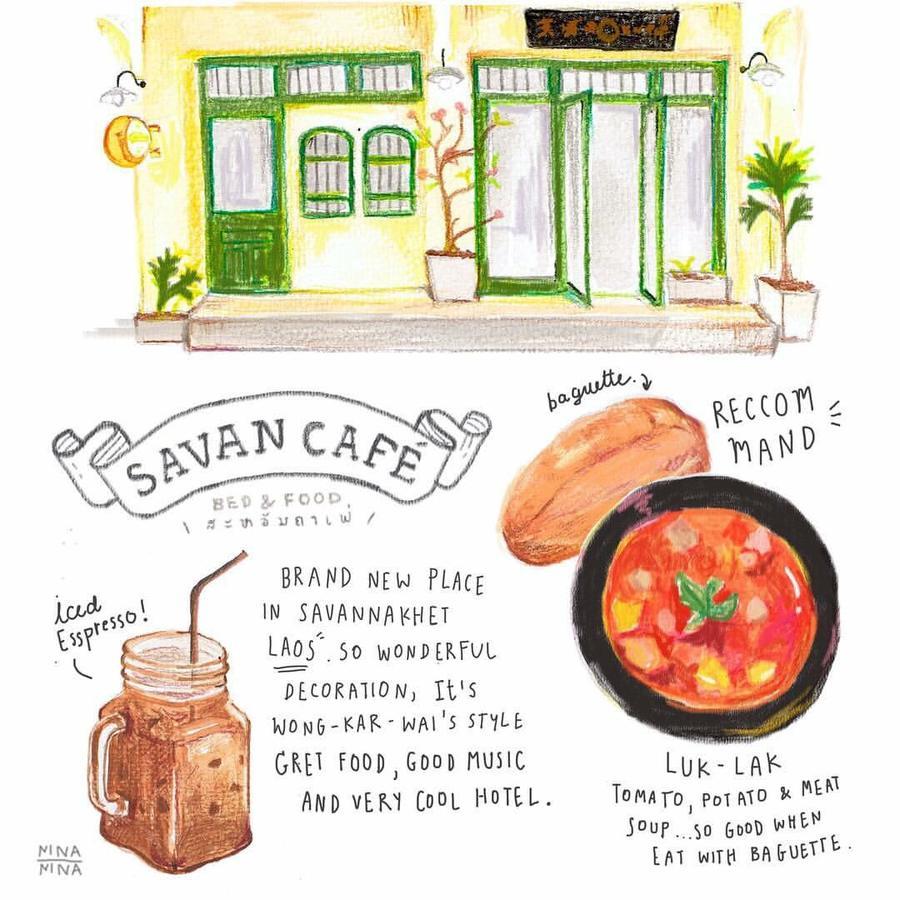 baguette.
RECCOM
MAND
SAVAN CAFÉ
BED & FOOD
iced
Esspresso!
BRAND NEW PLACE
IN SAVANNAKHET
LAOS". SO WONDERFUL
DECORATION, It's
WONG-KAR-WAI'S STYLE
GRET FOOD, GOOD MUSIC
AND VERY COOL HOTEL.
LUK-LAK
TOMATO, POTATO & MEAT
SOUP...SO GOOD WHEN
EAT WITH BAGUETTE.
MINA
MINA